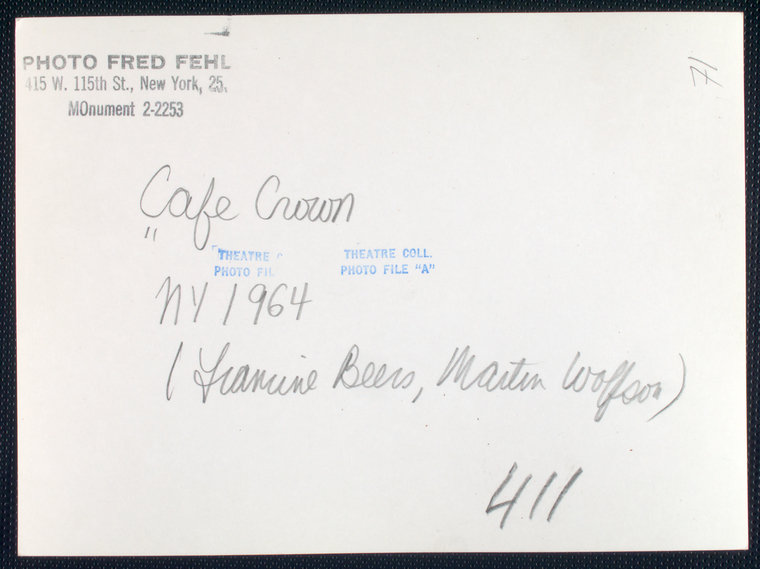 PHOTO FRED FEHL
415 W. 115th St., New York, 25,
MOnument 2-2253
71
Cafe Crown
"
THEATRE C
PHOTO FIL
THEATRE COLL.
PHOTO FILE "A"
NY 1964
( Francine Beers, Martin Wolfson)
411